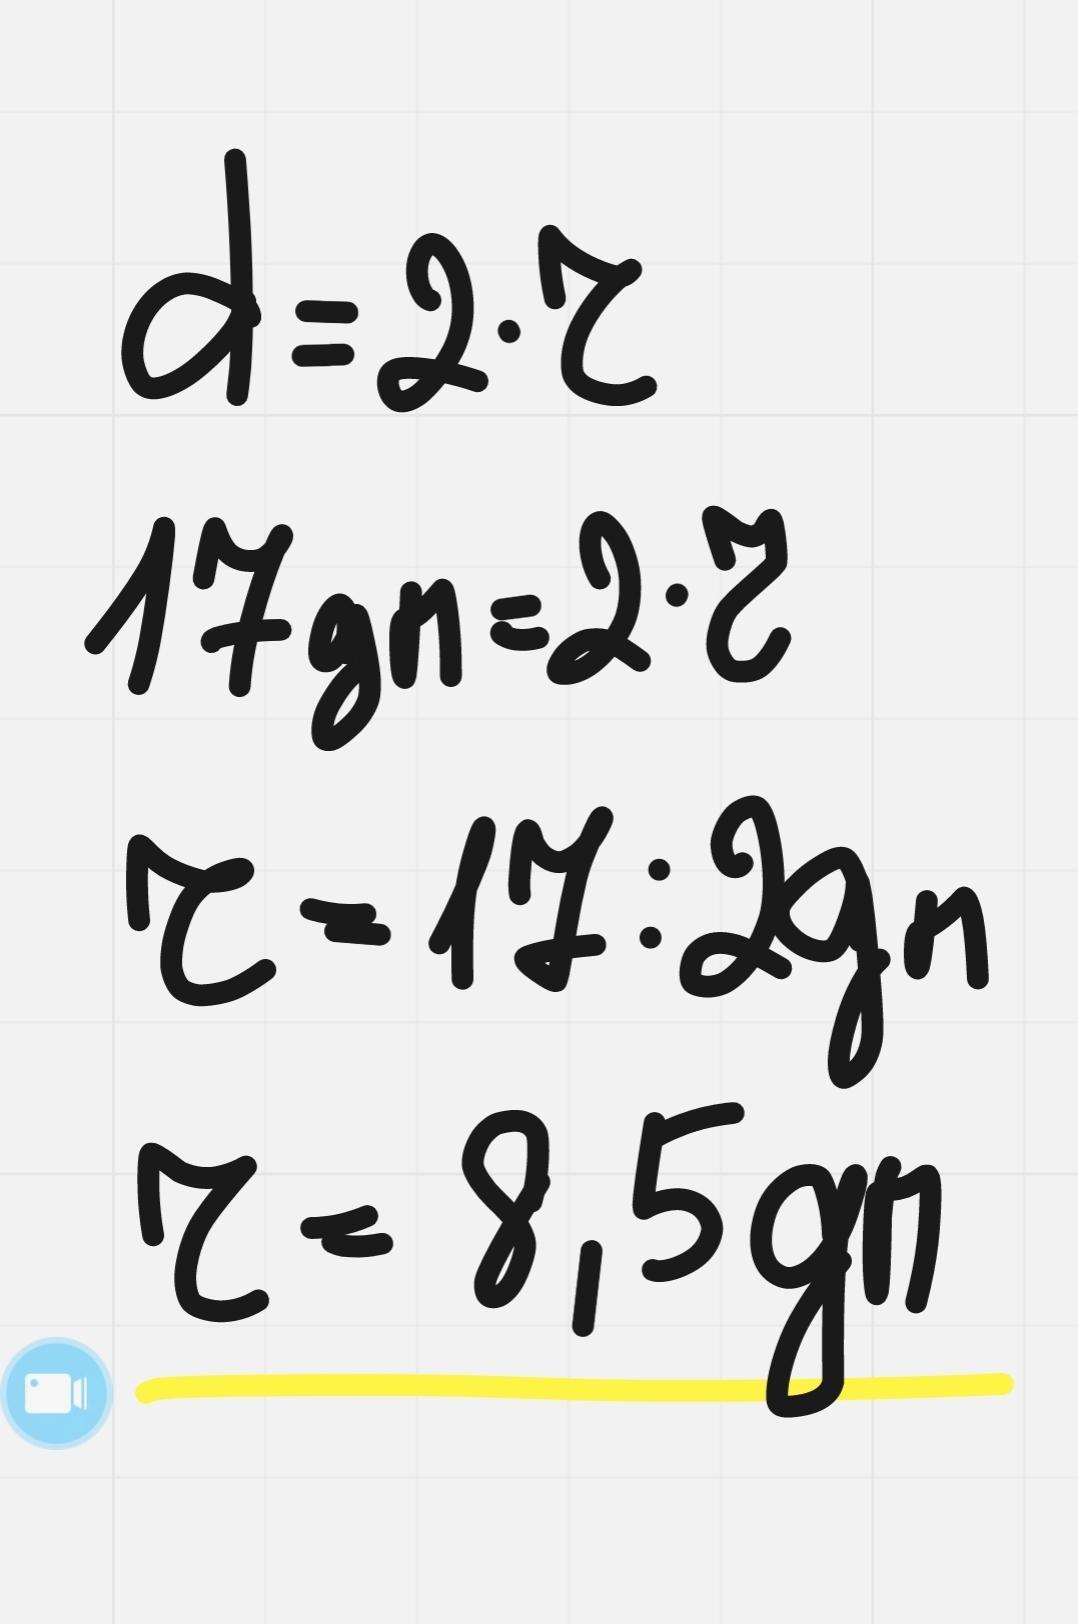 d=2·r
17дм=2·r
r=17:2дм
r=8,5дм